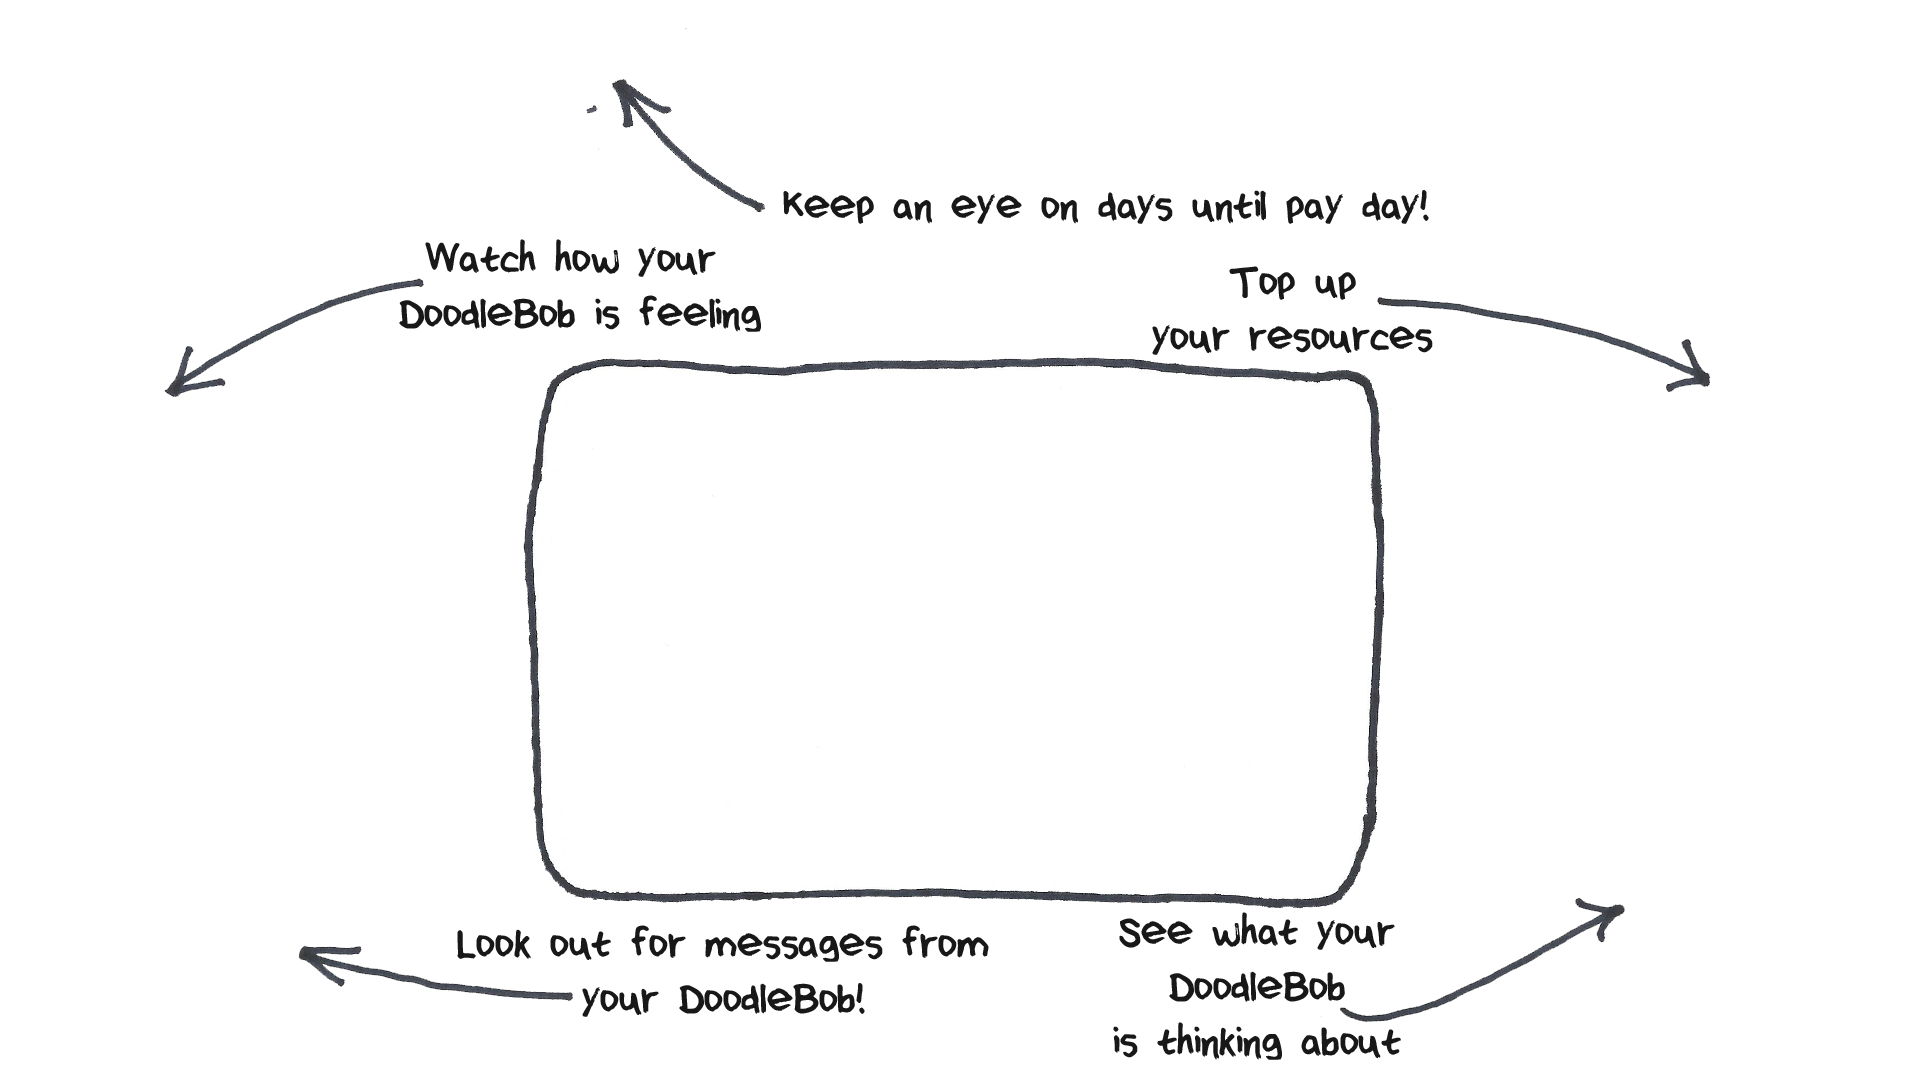 Keep an eye on days until pay day!
Watch how your
DoodleBob is feeling
Top up
your resources
Look out for messages from
your DoodleBob!
See what your
DoodleBob
is thinking about